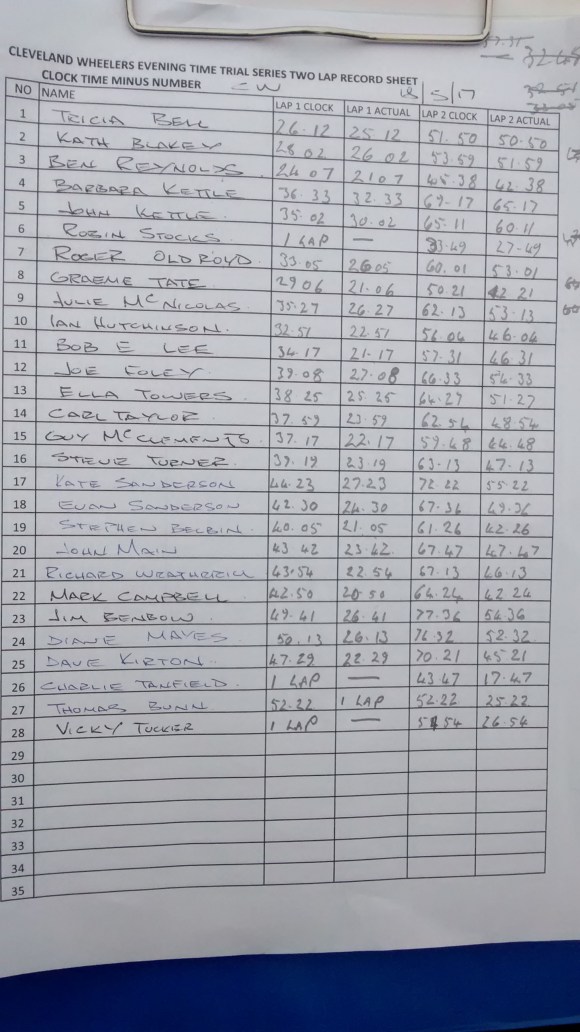 CLEVELAND WHEELERS EVENING TIME TRIAL SERIES TWO LAP RECORD SHEET
CLOCK TIME MINUS NUMBER = W 18/5/17
NO NAME LAP 1 CLOCK LAP 1 ACTUAL LAP 2 CLOCK LAP 2 ACTUAL
1 TRICIA BELL 26.12 25 12 51.50 50.50
2 KATH BLAKEY 28 02 26 02 53.59 51.59
3 BEN REYNOLDS. 24 07 2107 45.38 42.38
4 BARBARA KETTLE 36.33 32.33 69.17 65.17
5 JOHN KETTLE. 35.02 30.02 65.11 60.11
6 ROBIN STOCKS 1 LAP — 33.49 27-49
7 ROGER OLDROYD. 33.05 2605 60.01 53.01
8 GRAEME TATE 2906 21.06 50.21 42 21
9 JULIE McNICOLAS. 35.27 26.27 62.13 53.13
10 IAN HUTCHINSON. 32.51 22.51 56.04 46.04
11 BOB E LEE 34.17 21.17 57.31 46 31
12 JOE FOLEY. 39.08 27.08 66.33 54.33
13 ELLA TOWERS. 38 25 25.25 64.27 51.27
14 CARL TAYLOR 37.59 23.59 62.54 48.54
15 GUY McCLEMENTS. 37.17 22.17 59.48 44.48
16 STEVIE TURNER. 39.19 23.19 63.13 47.13
17 KATE SANDERSON 44.23 27.23 72.22 55.22
18 EUAN SANDERSON 42.30 24.30 67.36 49.36
19 STEPHEN BELBIN. 40.05 21.05 61.26 42.26
20 JOHN MAIN 43 42 23.42. 67.47 47.47
21 RICHARD WEATHERILL 43.54 22.54 67.13 46.13
22 MARK CAMPBELL 42.50 20 50 64.24 42 24
23 JIM BENBOW. 49.41 26.41 77.36 54.36
24 DIANE MAYES 50.13 26.13 76 32 52.32
25 DAVE KIRTON.. 47.29 22.29 70.21 45 21
26 CHARLIE TANFIELD. 1 LAP — 43.47 17.47
27 THOMAS BUNN 52.22 1 LAP 52.22 25.22
28 VICKY TUCKER 1 LAP — 54 26.54
29
30
31
32
33
34
35